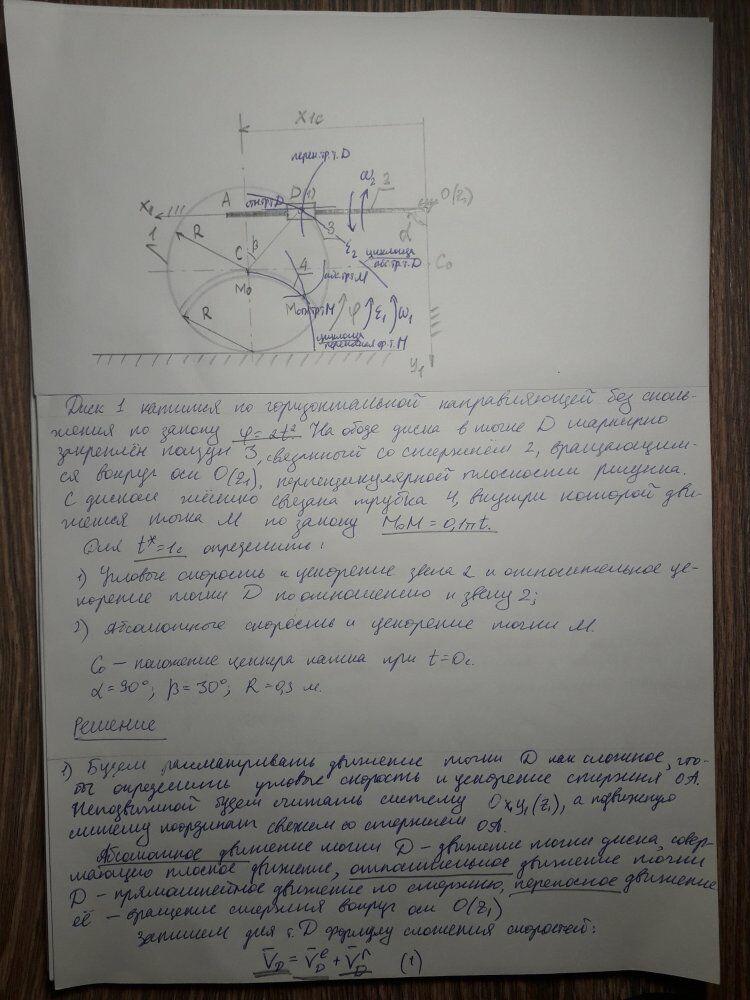 X1c
перен.тр.т.D
A
отн.тр.т.D
D
ω2
2
O(z1)
X1
1
R
C
β
3
ε2
α
циклоида
абс.тр.т.D
C0
M0
4
абс.тр.т.M
R
M
отн.тр.т.M
φ
ε1
ω1
циклоида
переносная тр.т.M
y1
Диск 1 катится по горизонтальной направляющей без сколь-
жения по закону φ=2t² На ободе диска в точке D шарнирно
закреплён ползун 3, связанный со стержнем 2, вращающим-
ся вокруг оси O(z1), перпендикулярной плоскости рисунка.
С диском жёстко связана трубка 4, внутри которой дви-
жется точка M по закону M0M=0,1πt.
Для t*=1с определить:
1) Угловые скорость и ускорение звена 2 и относительное ус-
корение точки D по отношению к звену 2;
2) Абсолютные скорость и ускорение точки M.
C0 – положение центра катка при t=0с.
α=90°; β=30°; R=0,3 м.
Решение
1) Будем рассматривать движение точки D как сложное, что-
бы определить угловые скорость и ускорение стержня OA.
Неподвижной будем считать систему Ox1y1(z1), а подвижную
систему координат свяжем со стержнем OA.
Абсолютное движение точки D – движение точки диска, совер-
шающего плоское движение, относительное движение точки
D – прямолинейное движение по стержню, переносное движение
её – вращение стержня вокруг оси O(z1)
Запишем для т.D формулу сложения скоростей:
V̄D = V̄Dᵉ + V̄Dʳ (1)